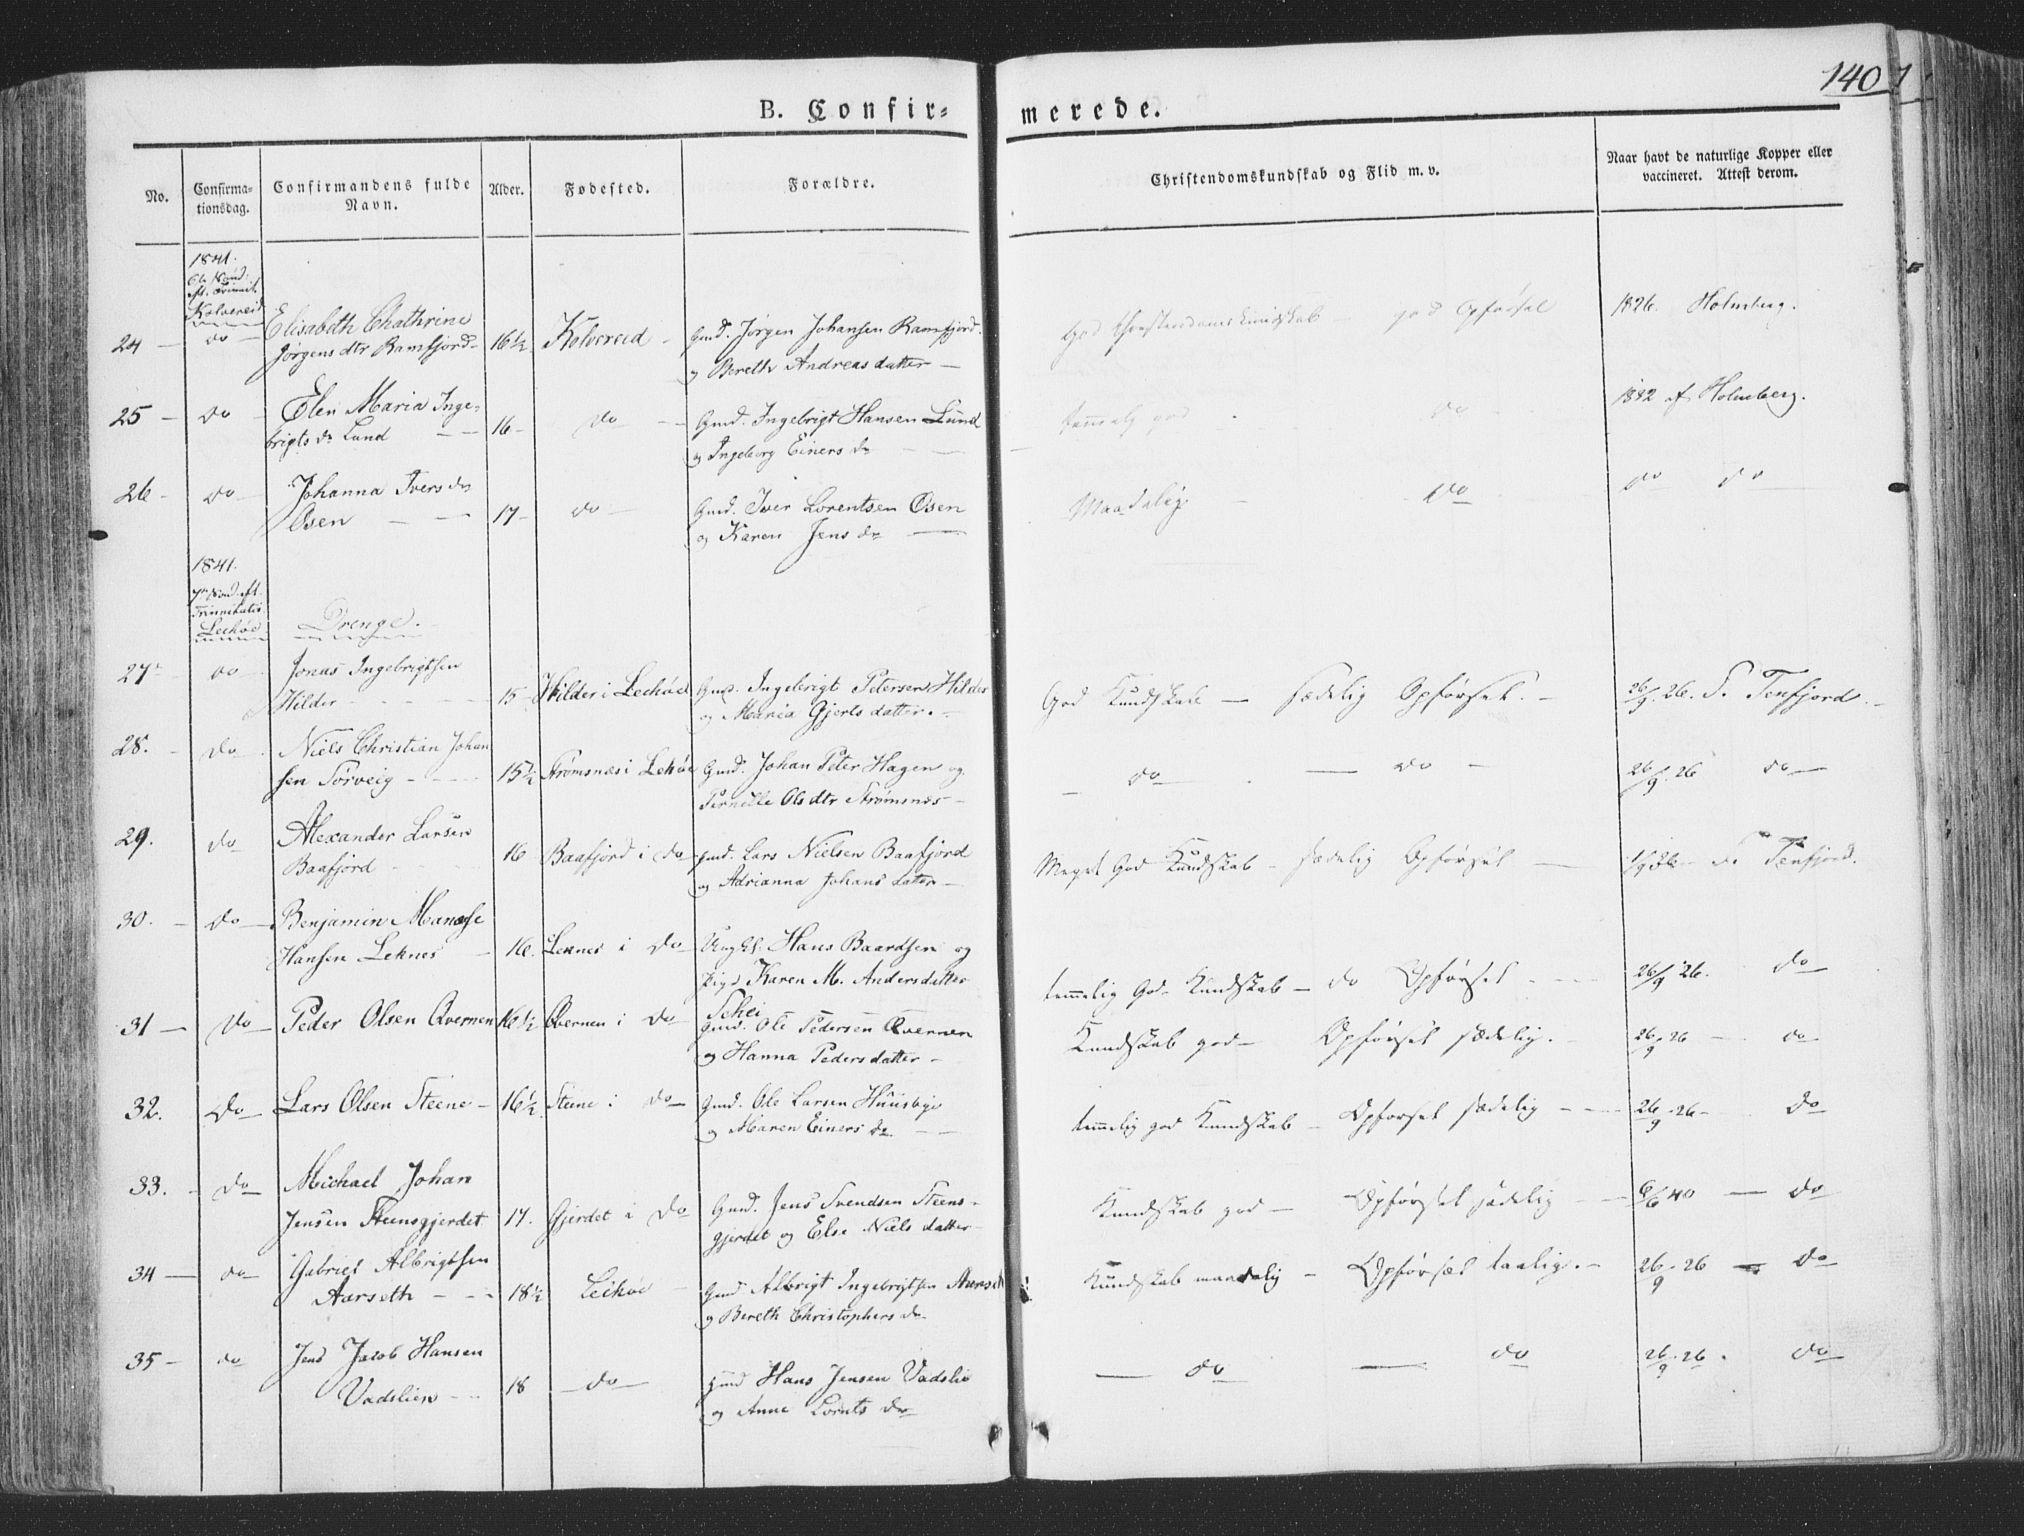 140
B. Confir-
merede.
No.
Confirma-
tionsdag.
Confirmandens fulde
Navn.
Alder.
Fødested.
Forældre.
Christendomskundskab og Flid m. v.
Naar havt de naturlige Kopper eller
vaccineret. Attest derom.
1841.
Kolvereid
24 - do - Elisabeth Chathrine
Jørgensdtr Ramfjord - 16½ Kolvereid - Gmd. Jørgen Johansen Ramfjord
og Bereth Andreasdatter -
God Christendomskundskab - god Opførsel
1826. Holmberg.
25 - do - Elen Maria Inge-
brigtsdr Lund - 16 - do - Gmd. Ingebrigt Hansen Lund
og Ingeborg Einersdr
temmelig god - do -
af Holmberg.
26 - do - Johanna Iversdr
Osen - 17 - do - Gmd. Iver Lorentsen Osen
og Karen Jensdr
Maadelig - do -
do do
1841.
7de Sønd. eft.
Trinitatis
Lechöe
Drenge.
27 - do - Jonas Ingebrigtsen
Hilder - 15 - Hilder i Lechöe Gmd. Ingebrigt Petersen Hilder
og Maria Gjertsdatter. -
God Kundskab - sædelig Opførsel. -
26/9. 26. Tenfjord. -
28. - do - Niels Christian Johan
sen Sørveig - 15½ Strømsnæs i Lekøe Gmd. Johan Peter Hagen og
Pernille Olsdtr Strømsnes -
- do - do -
26/9. 26 do -
29. do Alexander Larsen
Baafjord - 16 Baafjord i do - Gmd. Lars Nielsen Baafjord
og Adrianna Johansdatter -
Meget God Kundskab - sædelig Opførsel -
Tenfjord.
30. - do - Benjamin Manasse
Hansen Leknes - 16. Leknes i do - Ungkl. Hans Baardsen og
Pige Karen M. Andersdatter
Schei
temmelig God Kundskab - do Opførsel -
26/9 26. do
31 - do - Peder Olsen Qvernen 16½ Qvernen i do - Gmd. Ole Pedersen Qvernen
og Hanna Pedersdatter -
Kundskab god - Opførsel sædelig. -
26/9 26 - do
32. do - Lars Olsen Steene - 16½ Steene i do - Gmd. Ole Larsen Huusbye
og Maren Einersdr -
temmelig god Kundskab - Opførsel sædelig -
26/9. 26 - do
33. - do - Michael Johan
Jensen Steensgjerdet 17. Gjerdet i do Gmd. Jens Svendsen Steens-
gjerdet og Else Nielsdatter -
Kundskab god - Opførsel sædelig -
6/6 40 - do
34 - do - Gabriel Albrigtsen
Aarseth - 18½ Leköe - Gmd Albrigt Ingebrigtsen Aarseth
og Bereth Christophersdr
Kundskab maadelig - Opførsel taalig. -
26/9. 26 - do
35 - do Jens Jacob Hansen
Vadslien - 18 - do - Gmd Hans Jensen Vadslie
og Anne Lorntsdr
- do - do
26/9. 26. do